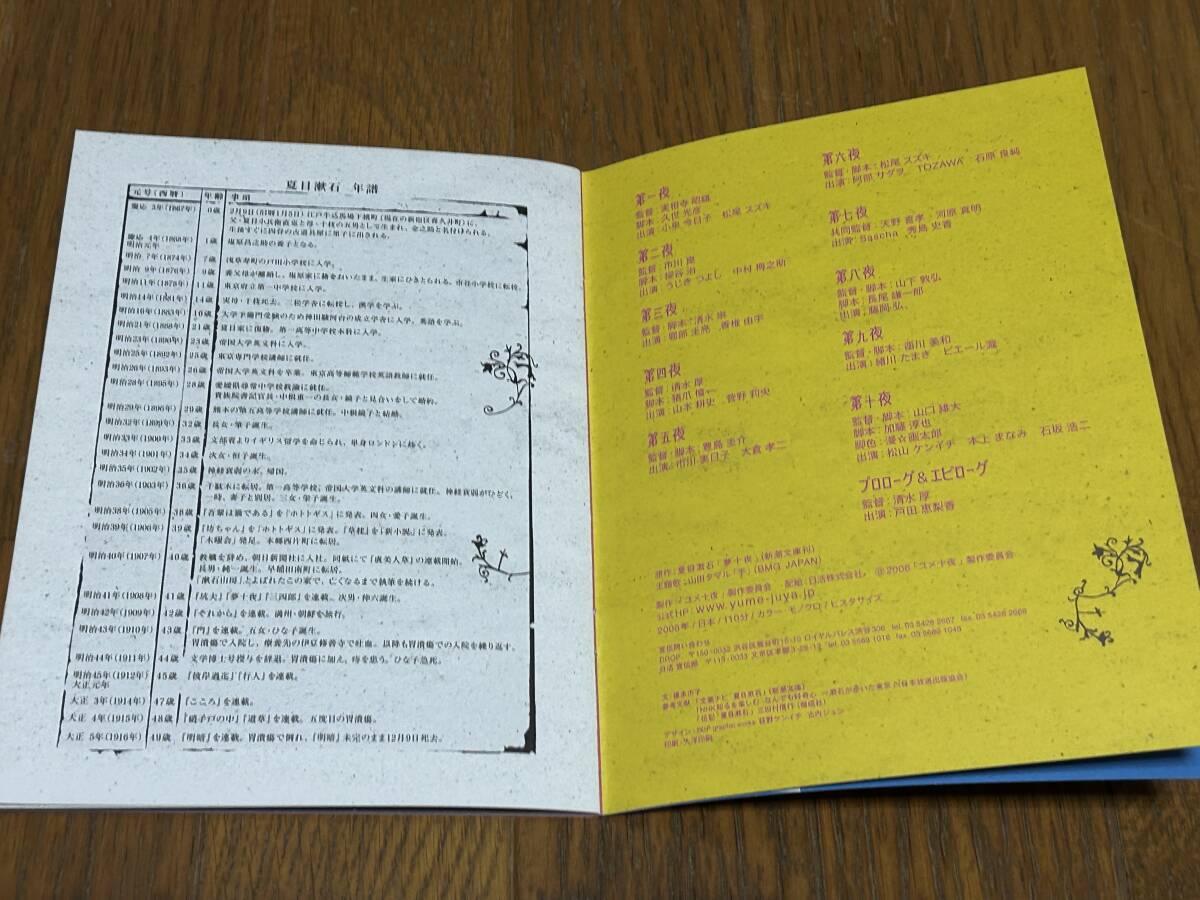 夏目漱石 年譜
元号(西暦) 年齢 事項
慶応 3年(1867年) 0歳 2月9日(旧暦1月5日)江戸牛込馬場下横町(現在の新宿区喜久井町)に、
父・夏目小兵衛直克と母・千枝の五男として生まれ、金之助と名付けられる。
生後すぐに四谷の古道具屋に里子に出される。
慶応 4年(1868年)
明治元年 1歳 塩原昌之助の養子となる。
明治 7年(1874年) 7歳 浅草寿町の戸田小学校に入学。
明治 9年(1876年) 9歳 養父母が離婚し、塩原家に籍をおいたまま、生家にひきとられる。市谷小学校に転校。
明治11年(1878年) 11歳 東京府立第一中学校に入学。
明治14年(1881年) 14歳 実母・千枝死去。二松学舎に転校し、漢学を学ぶ。
明治16年(1883年) 16歳 大学予備門受験のため神田駿河台の成立学舎に入学。英語を学ぶ。
明治21年(1888年) 21歳 夏目家に復籍。第一高等中学校本科に入学。
明治23年(1890年) 23歳 帝国大学英文科に入学。
明治25年(1892年) 25歳 東京専門学校講師に就任。
明治26年(1893年) 26歳 帝国大学英文科を卒業。東京高等師範学校英語教師に就任。
明治28年(1895年) 28歳 愛媛県尋常中学校教諭に就任。
貴族院書記官長・中根重一の長女・鏡子と見合いをして婚約。
明治29年(1896年) 29歳 熊本の第五高等学校講師に就任。中根鏡子と結婚。
明治32年(1899年) 32歳 長女・筆子誕生。
明治33年(1900年) 33歳 文部省よりイギリス留学を命じられ、単身ロンドンに赴く。
明治34年(1901年) 34歳 次女・恒子誕生。
明治35年(1902年) 35歳 神経衰弱の末、帰国。
明治36年(1903年) 36歳 千駄木に転居。第一高等学校、帝国大学英文科の講師に就任。神経衰弱がひどく、
一時、妻子と別居。三女・栄子誕生。
明治38年(1905年) 38歳 『吾輩は猫である』を『ホトトギス』に発表。四女・愛子誕生。
明治39年(1906年) 39歳 『坊ちゃん』を『ホトトギス』に発表。『草枕』を『新小説』に発表。
「木曜会」発足。本郷西片町に転居。
明治40年(1907年) 40歳 教職を辞め、朝日新聞社に入社。同紙にて『虞美人草』の連載開始。
長男・純一誕生。早稲田南町に転居。
「漱石山房」とよばれたこの家で、亡くなるまで執筆を続ける。
明治41年(1908年) 41歳 『坑夫』『夢十夜』『三四郎』を連載。次男・伸六誕生。
明治42年(1909年) 42歳 『それから』を連載。満州・朝鮮を旅行。
明治43年(1910年) 43歳 『門』を連載。五女・ひな子誕生。
胃潰瘍で入院し、療養先の伊豆修善寺で吐血。以降も胃潰瘍での入院を繰り返す。
明治44年(1911年) 44歳 文学博士号授与を辞退。胃潰瘍に加え、痔を患う。ひな子急死。
明治45年(1912年)
大正元年 45歳 『彼岸過迄』『行人』を連載。
大正 3年(1914年) 47歳 『こころ』を連載。
大正 4年(1915年) 48歳 『硝子戸の中』『道草』を連載。五度目の胃潰瘍。
大正 5年(1916年) 49歳 『明暗』を連載。胃潰瘍で倒れ、『明暗』未完のまま12月9日死去。
第一夜
監督:実相寺 昭雄
脚本:久世 光彦
出演:小泉 今日子 松尾 スズキ
第二夜
監督:市川 崑
脚本:柳谷 治
出演:うじき つよし 中村 梅之助
第三夜
監督・脚本:清水 崇
出演:堀部 圭亮 香椎 由宇
第四夜
監督:清水 厚
脚本:猪爪 慎一
出演:山本 耕史 菅野 莉央
第五夜
監督・脚本:豊島 圭介
出演:市川 実日子 大倉 孝二
第六夜
監督・脚本:松尾 スズキ
出演:阿部 サダヲ TOZAWA 石原 良純
第七夜
共同監督:天野 喜孝 河原 真明
出演:Sascha 秀島 史香
第八夜
監督・脚本:山下 敦弘
脚本:長尾 謙一郎
出演:藤岡 弘、
第九夜
監督・脚本:西川 美和
出演:緒川 たまき ピエール瀧
第十夜
監督・脚本:山口 雄大
脚本:加藤 淳也
脚色:漫☆画太郎
出演:松山 ケンイチ 本上 まなみ 石坂 浩二
プロローグ&エピローグ
監督:清水 厚
出演:戸田 恵梨香
原作:夏目漱石「夢十夜」(新潮文庫刊)
主題歌:山田タマル「手」(BMG JAPAN)
製作:「ユメ十夜」製作委員会 配給:日活株式会社 ©2006「ユメ十夜」製作委員会
公式HP:www.yume-juya.jp
2006年/日本/110分/カラー・モノクロ/ビスタサイズ
宣伝問い合わせ